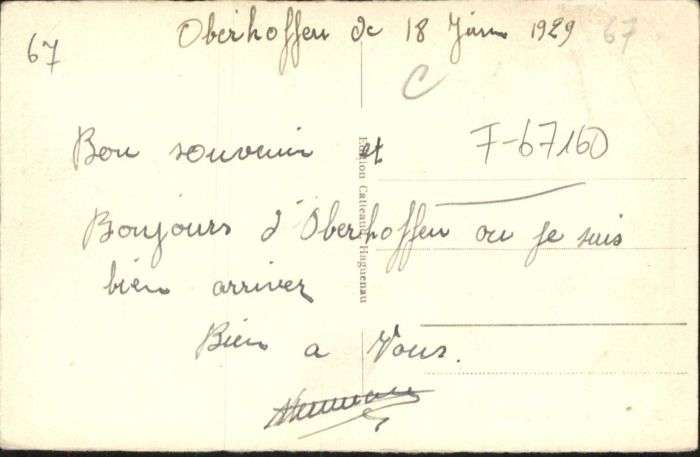 67
Oberhoffen de 18 Juin 1929
67
C
F-67160
Bon souvenir et
Bonjours d'Oberhoffen ou je suis
bien arriver
Bien a Vous.
Edition Catteaux, Haguenau